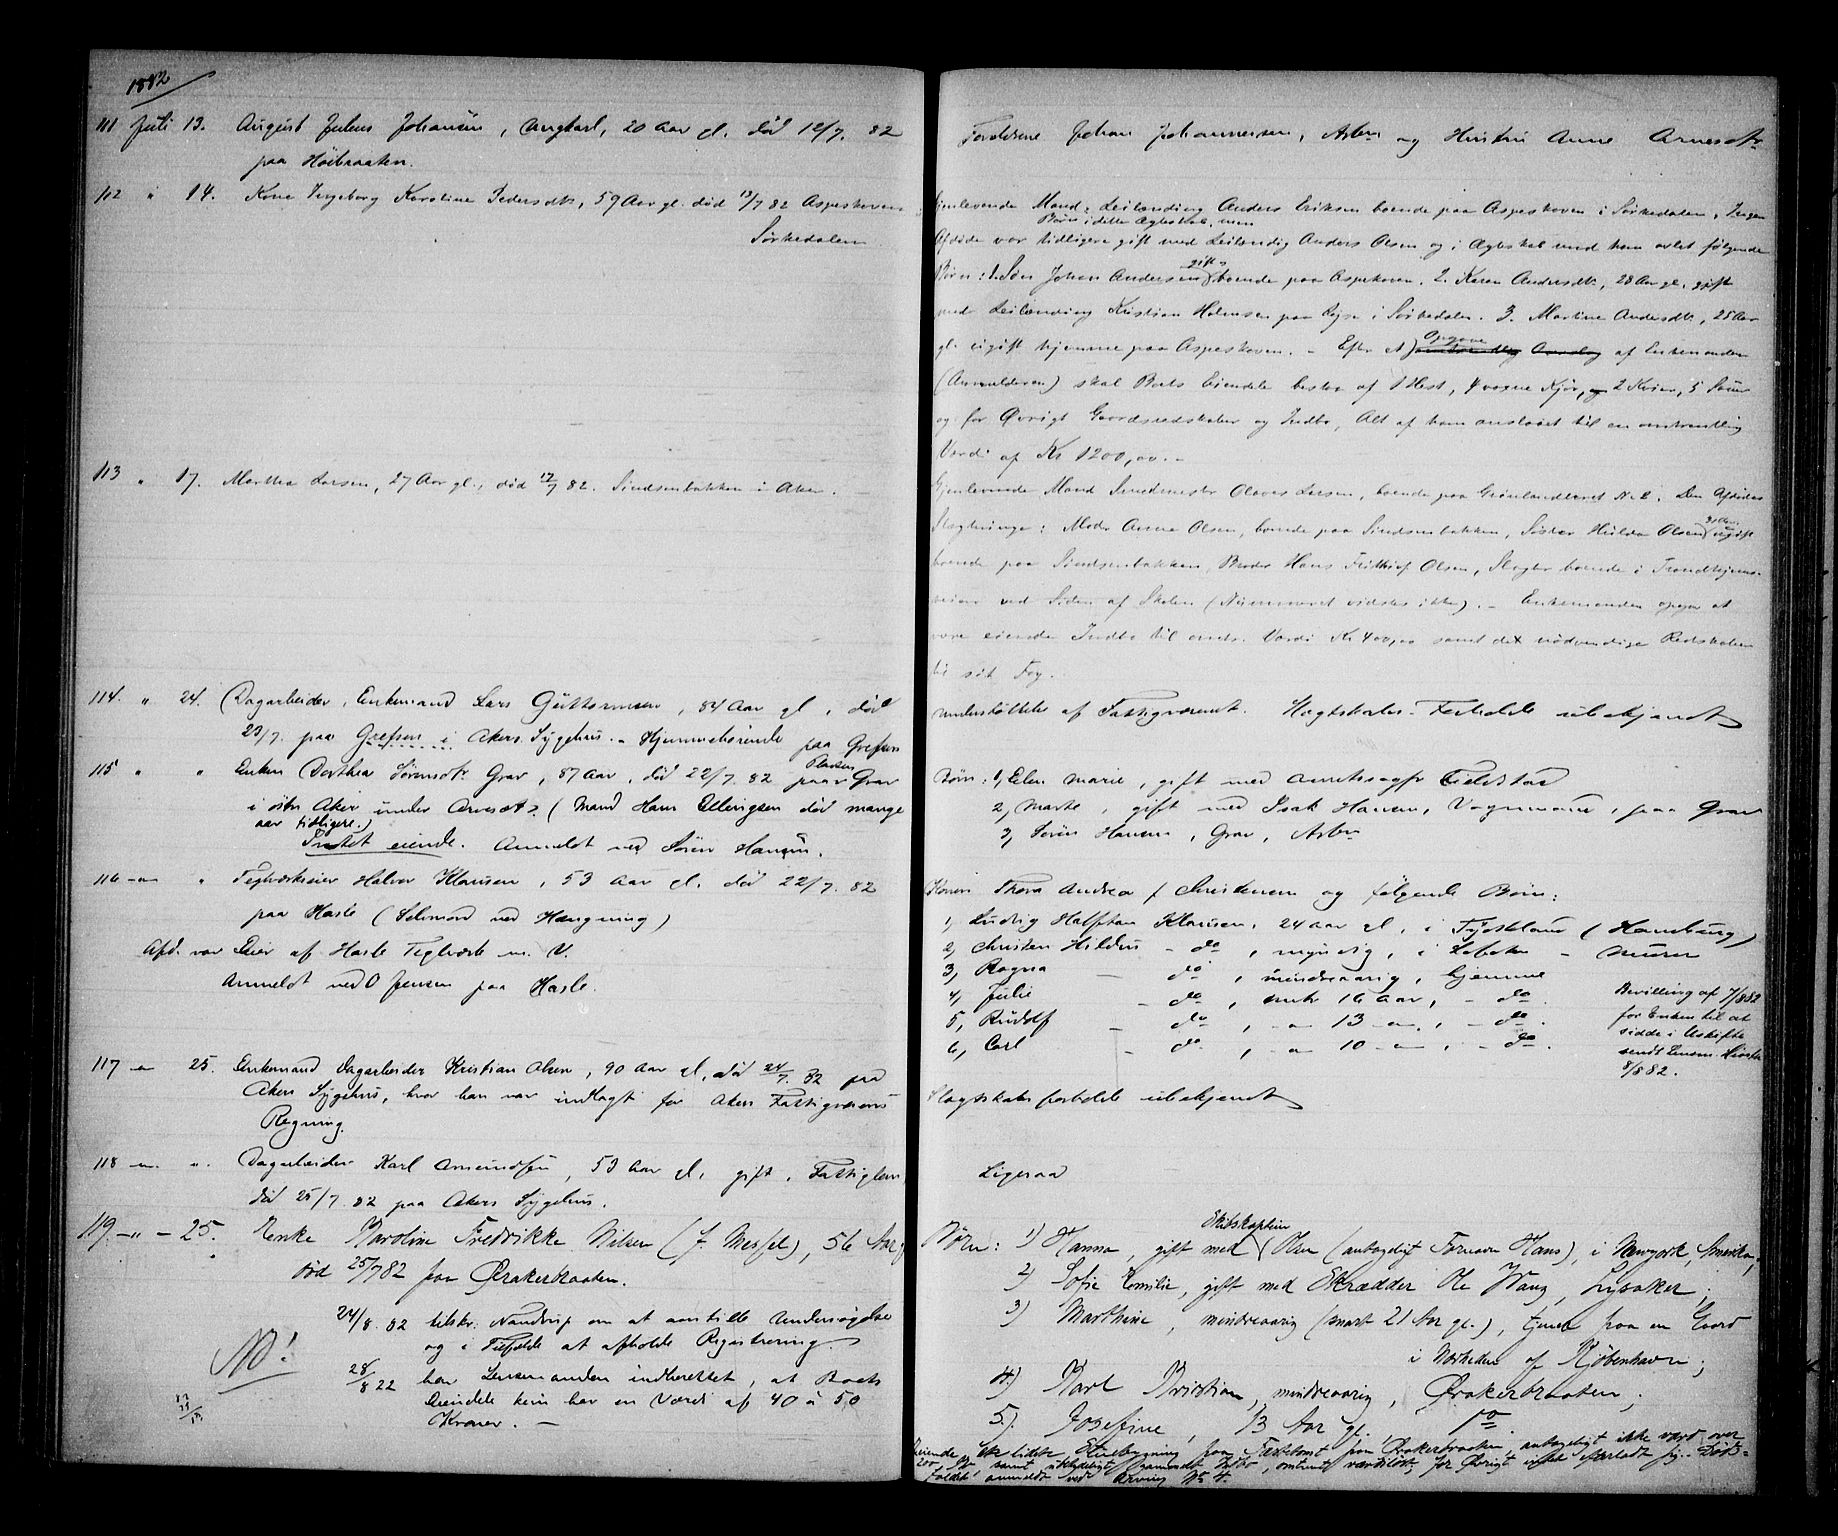 1882
111 Juli 13. August Julius Johansen, Ungkarl, 20 Aar gl. død 12/7. 82
paa Høibraaten.
112 " 14. Kone Ingeborg Karoline Pedersdtr, 59 Aar gl. død 13/7 82 Aspeskoven
Sørkedalen
113 " 17. Martha Larsen, 27 Aar gl., død 12/7 82. Sindsenbakken i Aker.
114. " 24. Dagarbeider, Enkemand Lars Guttormsen, 84 Aar gl, død
23/7. paa Grefsen i Akers Sygehus. - Hjemmehørende paa Grefsen
115 " " Enken Dorthea Sørensdtr Grav, 87 Aar, død 22/7. 82 paa Pladsen Grav
i østre Aker under (Mand Hans Ellingsen død mange
aar tidligere.)
Intet eiende. Anmeldt ved Søren Hansen.
116 - " - " Teglværkseier Halvor Klausen, 53 Aar gl. død 22/7. 82
paa Hasle (Selvmord ved Hængning)
Afd. var Eier af Hasle Teglværk m. V.
Anmeldt ved O Jensen paa Hasle.
117 - " 25. Enkemand Dagarbeider Kristian Olsen, 90 Aar gl. død 24/7. 82 paa
Akers Sygehus, hvor han var indlagt for Akers Fattigvæsens
Regning.
118 - " - " Dagarbeider Karl Amundsen, 53 Aar gl, gift, Fattiglem
død 25/7. 82 paa Akers Sygehus.
119. - " - 25. Enke Karoline Fredrikke Nilsen (f. Messel), 56 Aar gl
død 25/7 82 paa Ørakerbraaten.
24/8. 82 tilskr. Nandrup om at anstille Undersøgelse
og i Tilfælde at afholde Registrering.
NB!
28/8 22 har Lensmanden indberettet, at Boets
Eiendele kun har en Værdi af 40 à 50
Kroner. -
Forældrene Johan Johannesen, Arbm og Hustru Anne Arnesdtr
Gjenlevende Mand: Leilending Anders Eriksen boende paa Aspeskoven i Sørkedalen, Ingen
Børn i dette Ægteskab, men
Afdøde var tidligere gift med Leilending Anders Olsen og i Ægteskab med ham avlet følgende
Børn: 1. Søn Johan Andersen gift, boende paa Aspeskoven. 2. Karen Andersdtr, 28 Aar gl, gift
med Leilending Kristian Halvorsen paa i Sørkedalen. 3. Martine Andersdtr, 25 Aar
gl. ugift hjemme paa Aspeskoven. - Efter Opgave af Enkemanden
(Anmelderen) skal Boets Eiendele bestaa af 1 Hest, 4 voxne Kjør, 2 Kvier, 5 Sauer
og for Øvrigt Gaardsredskaber og Indbo, Alt af ham anslaaet til en omtrentlig
Værdi af Kr 1200,00. -
Gjenlevende Mand Smedmester Olaves Larsen, boende paa Grønlandtorvet No 2. Den Afdødes
Slægtninge: Moder Anna Olsen, boende paa Sindsenbakken, Søster Hulda Olsen ugift
boende paa Sindsenbakken, Broder Hans Frithiof Olsen, Slagter boende i Trondhjems-
veien ved Siden af Skolen (Nummeret vidstes ikke). - Enkemanden opgav at
være eiende Indbo til omtr. Værdi Kr 400,00 samt de nødvendige Redskaber
til sit Fag.
understøttedes af Fattigvæsenet. Slægtskabs-Forholde ubekjendt
Børn: 1, Elen Marie, gift med Amtssagfr Fieldstad
2, Marte, gift med Isak Hansen, Vognmand, paa Grav
3, Søren Hansen, Grav, Arbm
Konen Thora Andrea f Christensen og følgende Børn:
1, Ludvig Halfdan Klausen, 24 aar gl, i Tydskland (Hamburg)
2, Christen Hildus - do, myndig, i - Murer
3, Ragna - do, mindreaarig, hjemme
4, Julie - do, omtr 16 aar, - do.
5, Rudolf - do, - " 13 - ", - do.
6, Carl - do, - " 10 - ", - do.
Bevilling af 7/8 82
for Enken til at
sidde i Uskifte
sendt Lensm.
8/8 82.
Slægtskabsforholde ubekjendt
Ligesaa
Børn: 1) Hanna, gift med Skibskaptein Olsen (antageligt Fornavn Hans), i Newyork, Amerika;
2) Sofie Emilie, gift med Skrædder Ole Wang, Lysaker;
3) Marthine, mindreaarig (snart 21 Aar gl.), tjener paa en Gaard
i Nærheden af Kjøbenhavn;
4.) Karl Kristian, mindreaarig, Ørakerbraaten;
5.) Josefine, 13 Aar gl., do.
Eiende en liden Stuebygning paa Fæstetomt paa Ørakerbraaten, antageligt ikke værd over
200 Kr samt ubetydeligt Indbo, omtrent værdiløst; for Øvrigt intet efterladt sig. Døds-
faldet anmeldt ved Arving No 4.